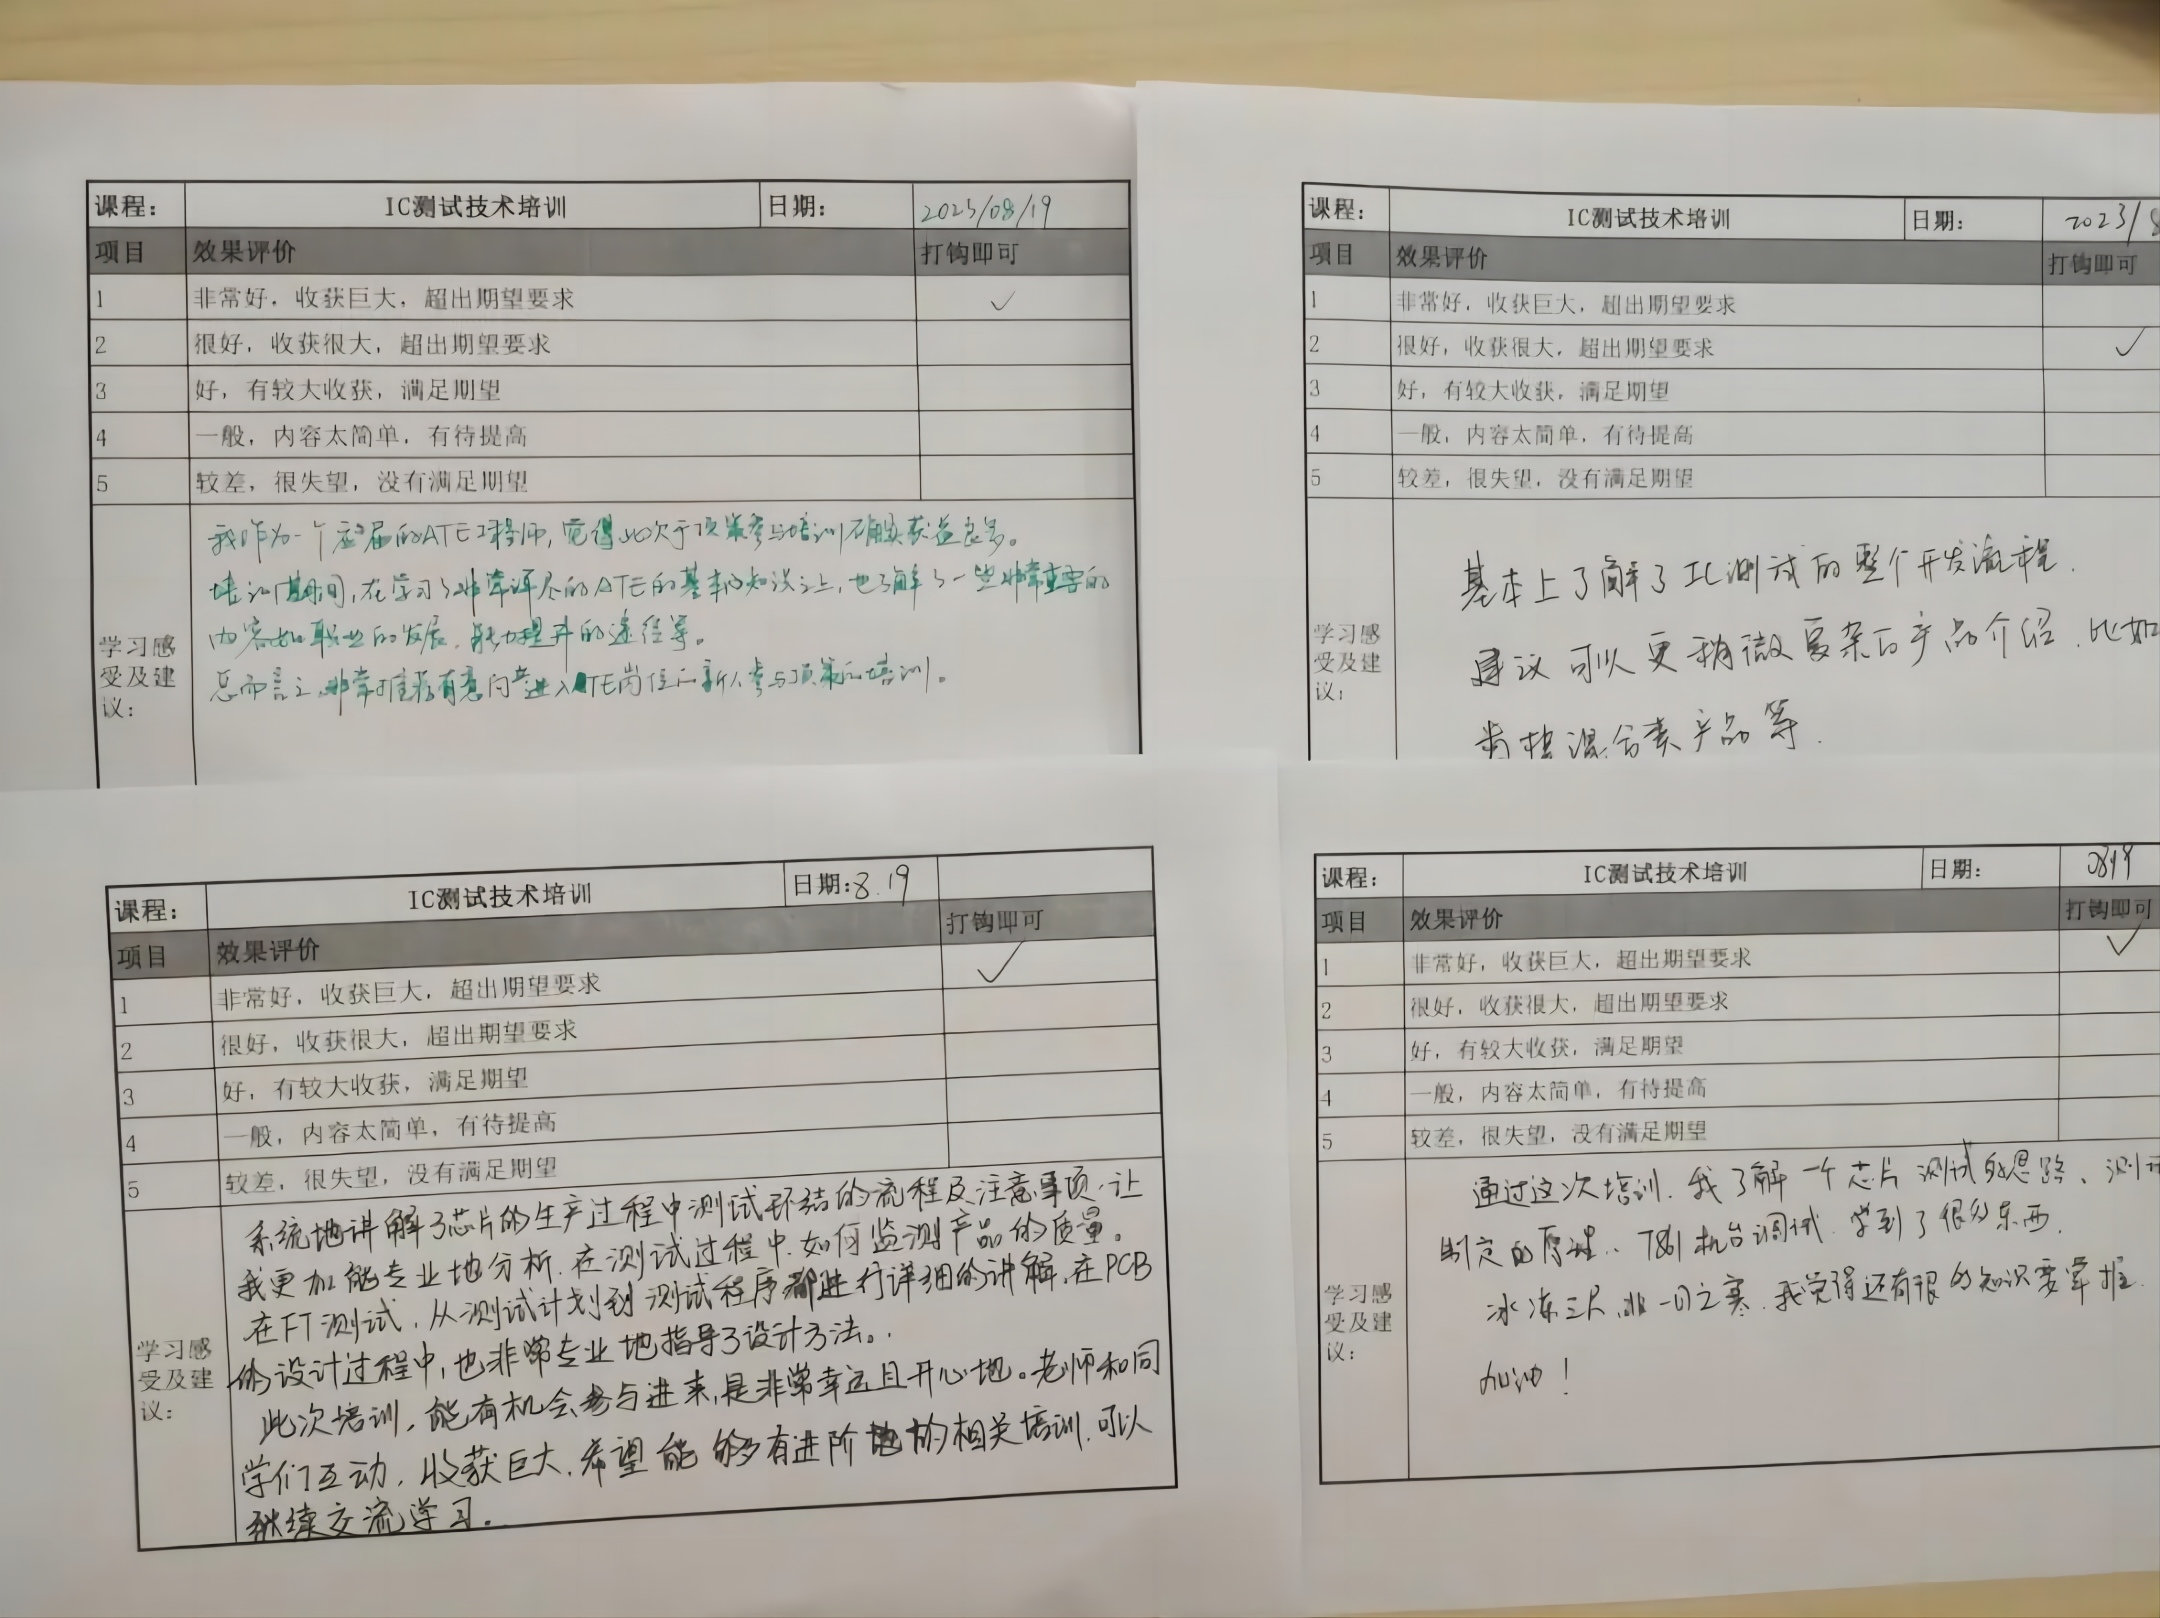 课程： IC测试技术培训 日期： 2023/08/19
项目 效果评价 打钩即可
1 非常好，收获巨大，超出期望要求 ✓
2 很好，收获很大，超出期望要求
3 好，有较大收获，满足期望
4 一般，内容太简单，有待提高
5 较差，很失望，没有满足期望
学习感受及建议：
我作为一个应届的ATE工程师，觉得此次于顶策参与培训确实获益良多。
培训期间，在学习了非常详尽的ATE的基本的知识之上，也了解了一些非常重要的
内容如职业的发展，能力提升的途径等。
总而言之，非常推荐有意向进入ATE岗位的新人参与顶策的培训。
课程： IC测试技术培训 日期： 2023/8
项目 效果评价 打钩即可
1 非常好，收获巨大，超出期望要求
2 很好，收获很大，超出期望要求 ✓
3 好，有较大收获，满足期望
4 一般，内容太简单，有待提高
5 较差，很失望，没有满足期望
学习感受及建议：
基本上了解了IC测试的整个开发流程.
建议可以更稍微复杂的产品介绍，比如
混合类产品等.
课程： IC测试技术培训 日期：8.19
项目 效果评价 打钩即可
1 非常好，收获巨大，超出期望要求 ✓
2 很好，收获很大，超出期望要求
3 好，有较大收获，满足期望
4 一般，内容太简单，有待提高
5 较差，很失望，没有满足期望
学习感受及建议：
系统地讲解了芯片的生产过程中测试环结的流程及注意事项，让
我更加能专业地分析，在测试过程中，如何监测产品的质量。
在FT测试，从测试计划到测试程序都进行详细的讲解，在PCB
的设计过程中，也非常专业地指导了设计方法。
此次培训，能有机会参与进来，是非常幸运且开心地。老师和同
学们互动，收获巨大，希望能够有进阶的相关培训，可以
继续交流学习。
课程： IC测试技术培训 日期： 0819
项目 效果评价 打钩即可
1 非常好，收获巨大，超出期望要求 ✓
2 很好，收获很大，超出期望要求
3 好，有较大收获，满足期望
4 一般，内容太简单，有待提高
5 较差，很失望，没有满足期望
学习感受及建议：
通过这次培训，我了解一个芯片测试的思路、测试
制定的原理、机台调试，学到了很多东西.
冰冻三尺，非一日之寒，我觉得还有很多知识要掌握.
加油！